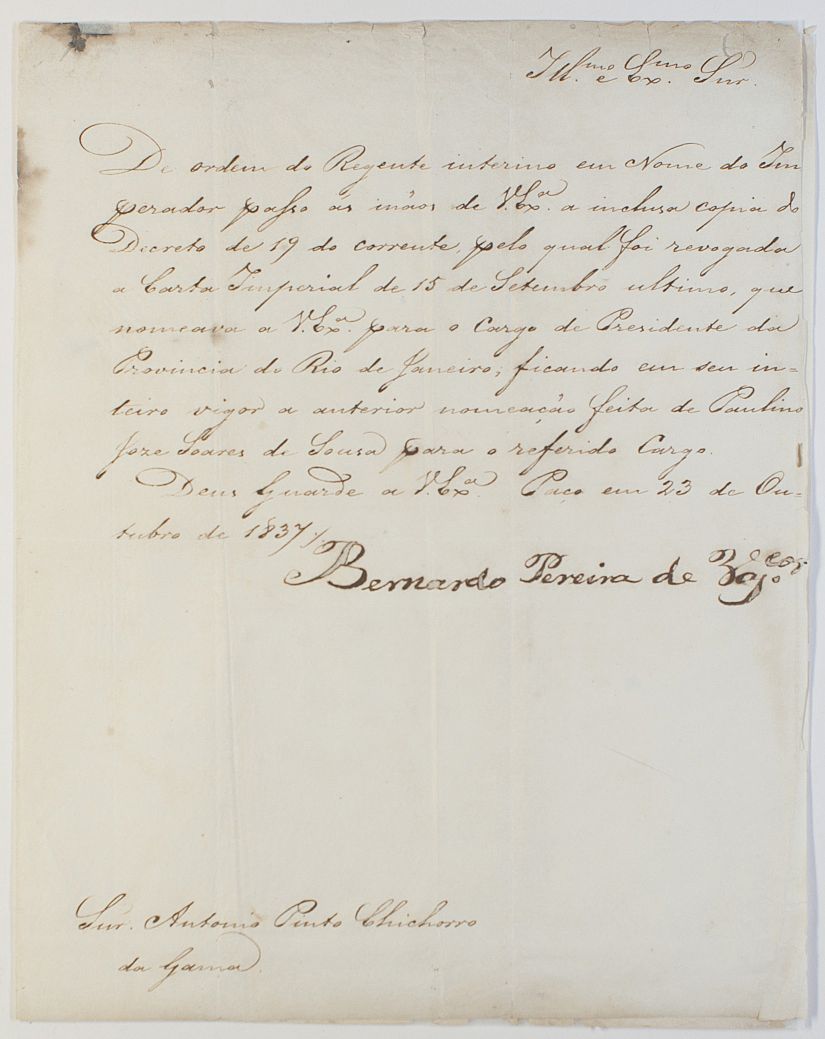 Ill.mo e Ex.mo Snr.
De ordem do Regente interino em Nome do Im
perador passo ás mãos de V.Ex.a a inclusa copia do
Decreto de 19 do corrente, pelo qual foi revogada
a Carta Imperial de 15 de Setembro ultimo, que
nomeava a V.Ex.a para o Cargo de Presidente da
Provincia do Rio de Janeiro; ficando em seu in=
teiro vigor a anterior nomeação feita de Paulino
Joze Soares de Sousa para o referido Cargo.
Deus Guarde a V.Ex.a Paço em 23 de Ou=
tubro de 1837/.
Bernardo Pereira de Vas.cos
Snr. Antonio Pinto Chichorro
da Gama.